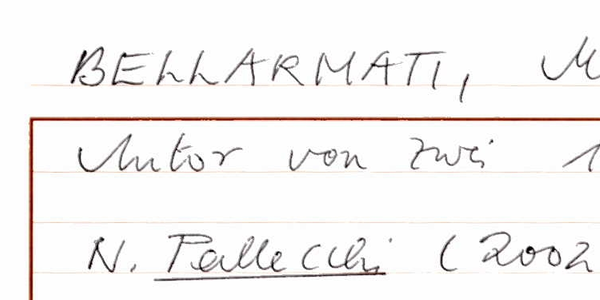 BELLARMATI, M
Autor von zwei 1
N. Pallecchi (2002